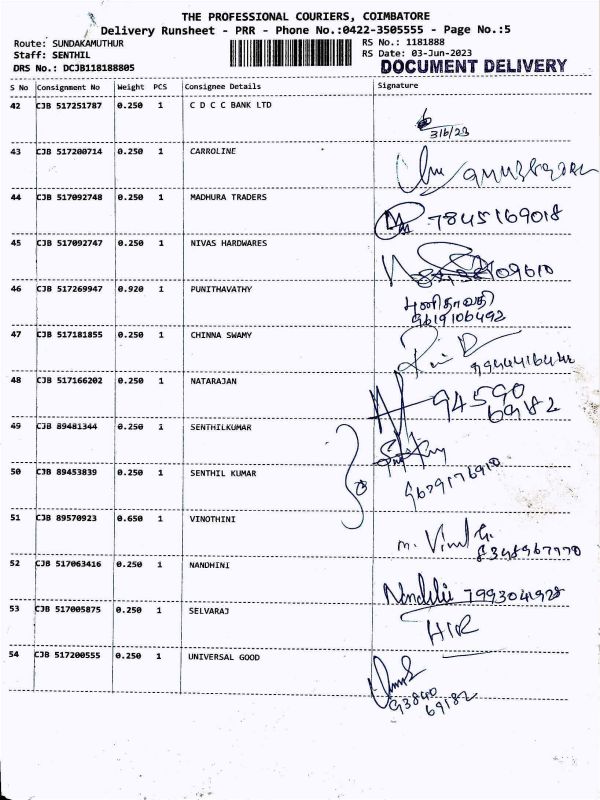 THE PROFESSIONAL COURIERS, COIMBATORE
Delivery Runsheet - PRR - Phone No.:0422-3505555 - Page No.:5
Route: SUNDAKAMUTHUR
RS No.: 1181888
Staff: SENTHIL
RS Date: 03-Jun-2023
DRS No.: DCJB118188805
DOCUMENT DELIVERY
S No Consignment No Weight PCS Consignee Details Signature
42 CJB 517251787 0.250 1 C D C C BANK LTD
3/6/23
43 CJB 517200714 0.250 1 CARROLINE
44 CJB 517092748 0.250 1 MADHURA TRADERS
7845169018
45 CJB 517092747 0.250 1 NIVAS HARDWARES
46 CJB 517269947 0.920 1 PUNITHAVATHY
புனிதாவதி
9619106492
47 CJB 517181855 0.250 1 CHINNA SWAMY
48 CJB 517166202 0.250 1 NATARAJAN
94590
69182
49 CJB 89481344 0.250 1 SENTHILKUMAR
50 CJB 89453839 0.250 1 SENTHIL KUMAR
9679176910
51 CJB 89570923 0.650 1 VINOTHINI
8348967770
52 CJB 517063416 0.250 1 NANDHINI
7993041928
53 CJB 517005875 0.250 1 SELVARAJ
54 CJB 517200555 0.250 1 UNIVERSAL GOOD
93840
69182